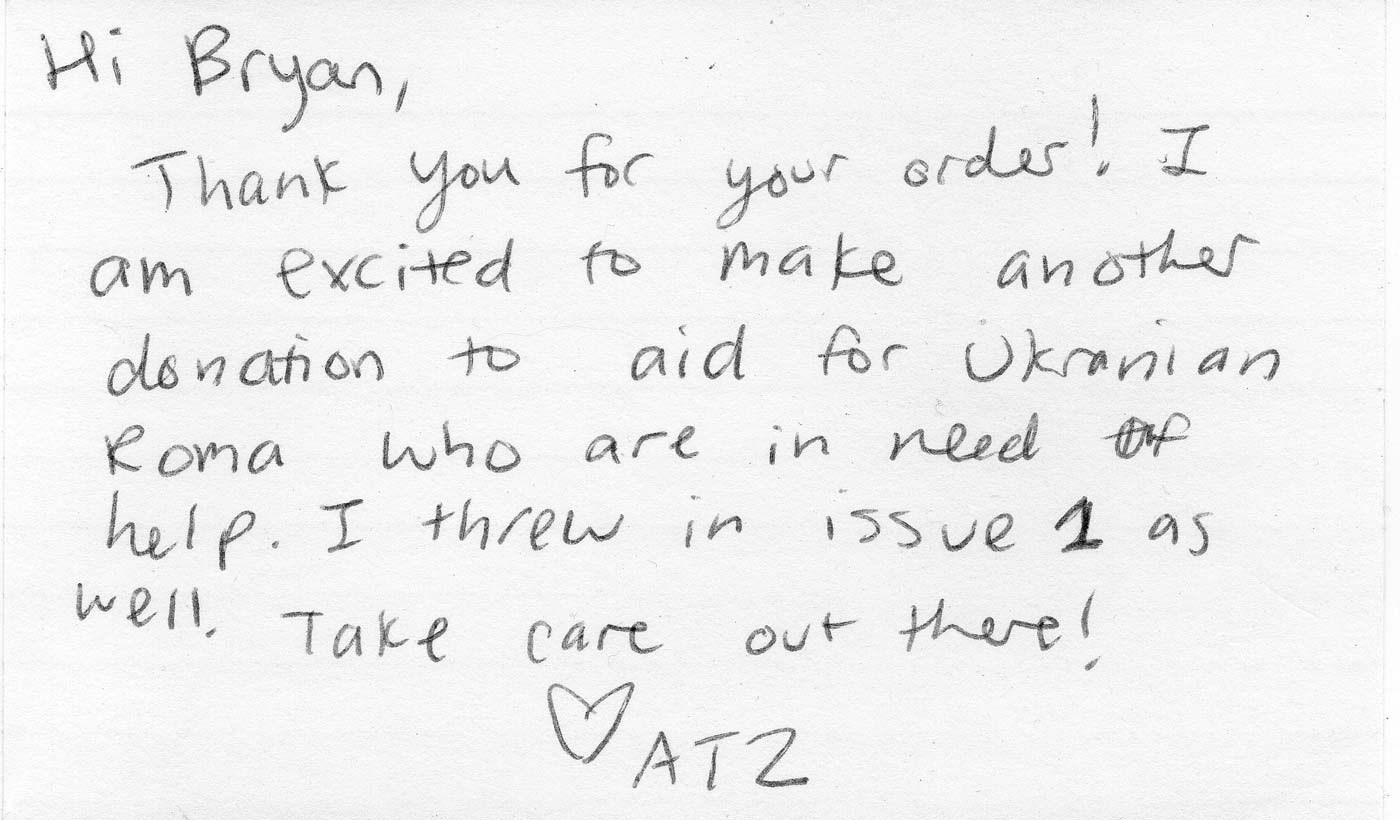 Hi Bryan,
Thank you for your order! I
am excited to make another
donation to aid for Ukranian
Roma who are in need of
help. I threw in issue 1 as
well. Take care out there!
♡ ATZ